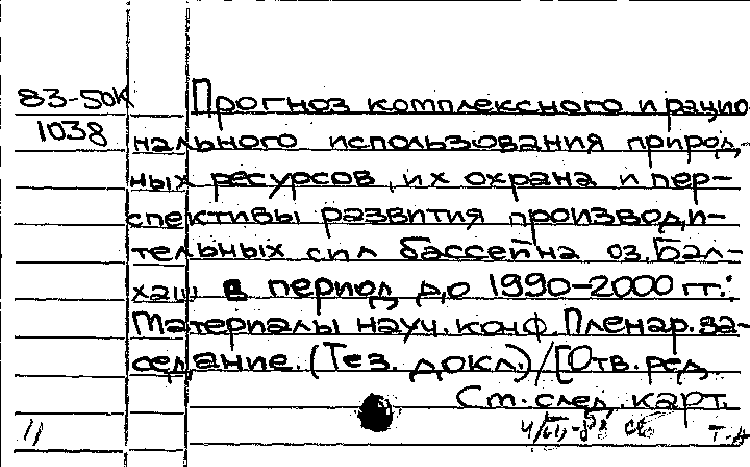 83-50К Прогноз комплексного и рацио
1038 нального использования природ-
ных ресурсов, их охрана и пер-
спективы развития производи-
тельных сил бассейна оз. Бал-
хаш в период до 1990-2000 гг.:
Материалы науч. конф. Пленар. за-
седание. (Тез. докл.)/[Отв. ред.
См. след. карт.
11